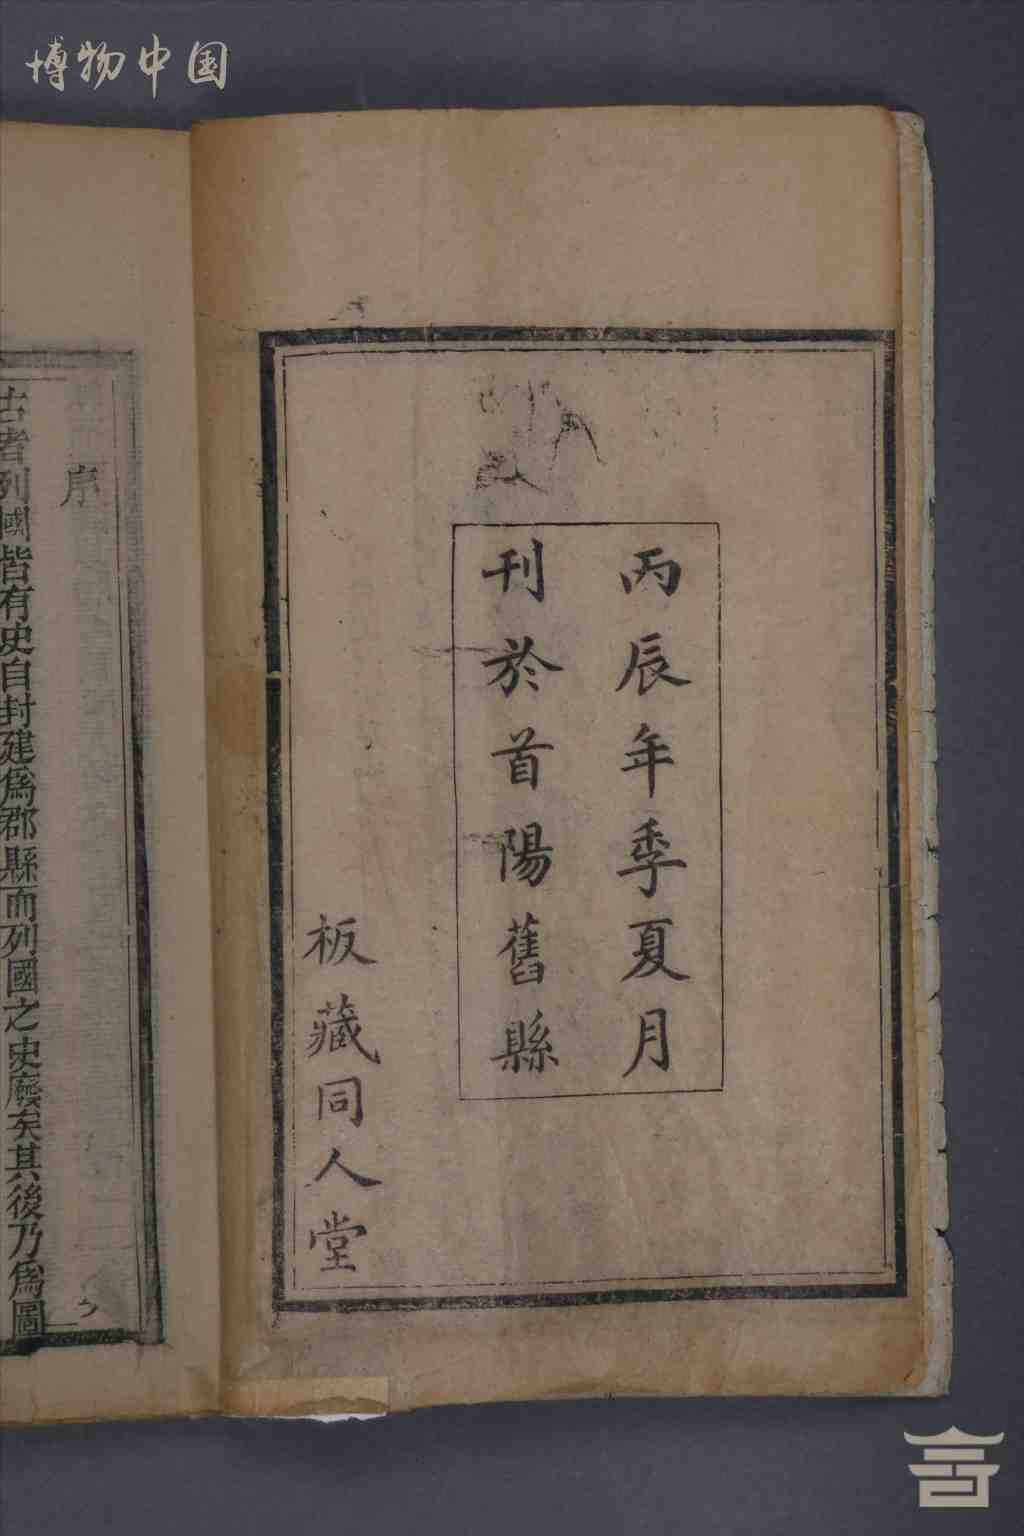 博物中国
丙辰年季夏月
刊於首陽舊縣
板藏同人堂
序
古者列國皆有史自封建爲郡縣而列國之史廢矣其後乃爲圖